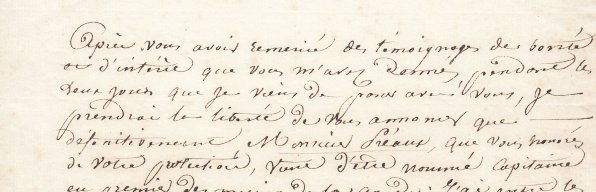 Après vous avoir remercié des témoignages de bonté
et d'intérêt que vous m'avez donné, pendant les
deux jours que je viens de passer avec vous, je
prendrai la liberté de vous annoncer que
définitivement Monsieur Préaux, que vous honorés
de votre protection, vient d'être nommé Capitaine
en premier